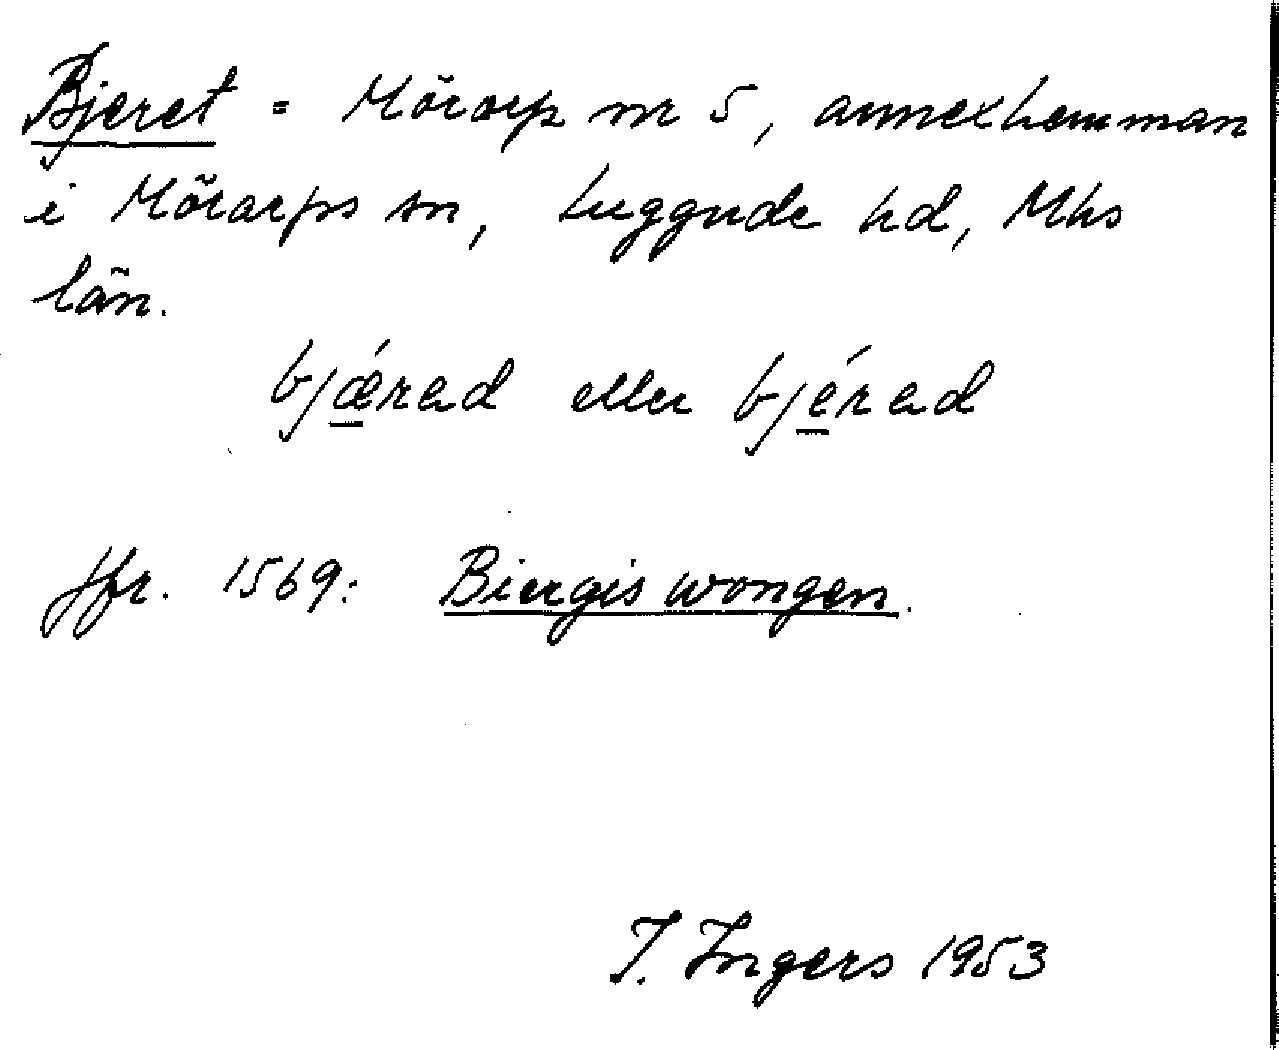 Bjeret = Mörarp nr 5, annexhemman
i Mörarps sn, Luggude hd, Mhs
län.
bjǽrad eller bjérad
Jfr. 1569: Biergis wongen.
I. Ingers 1953